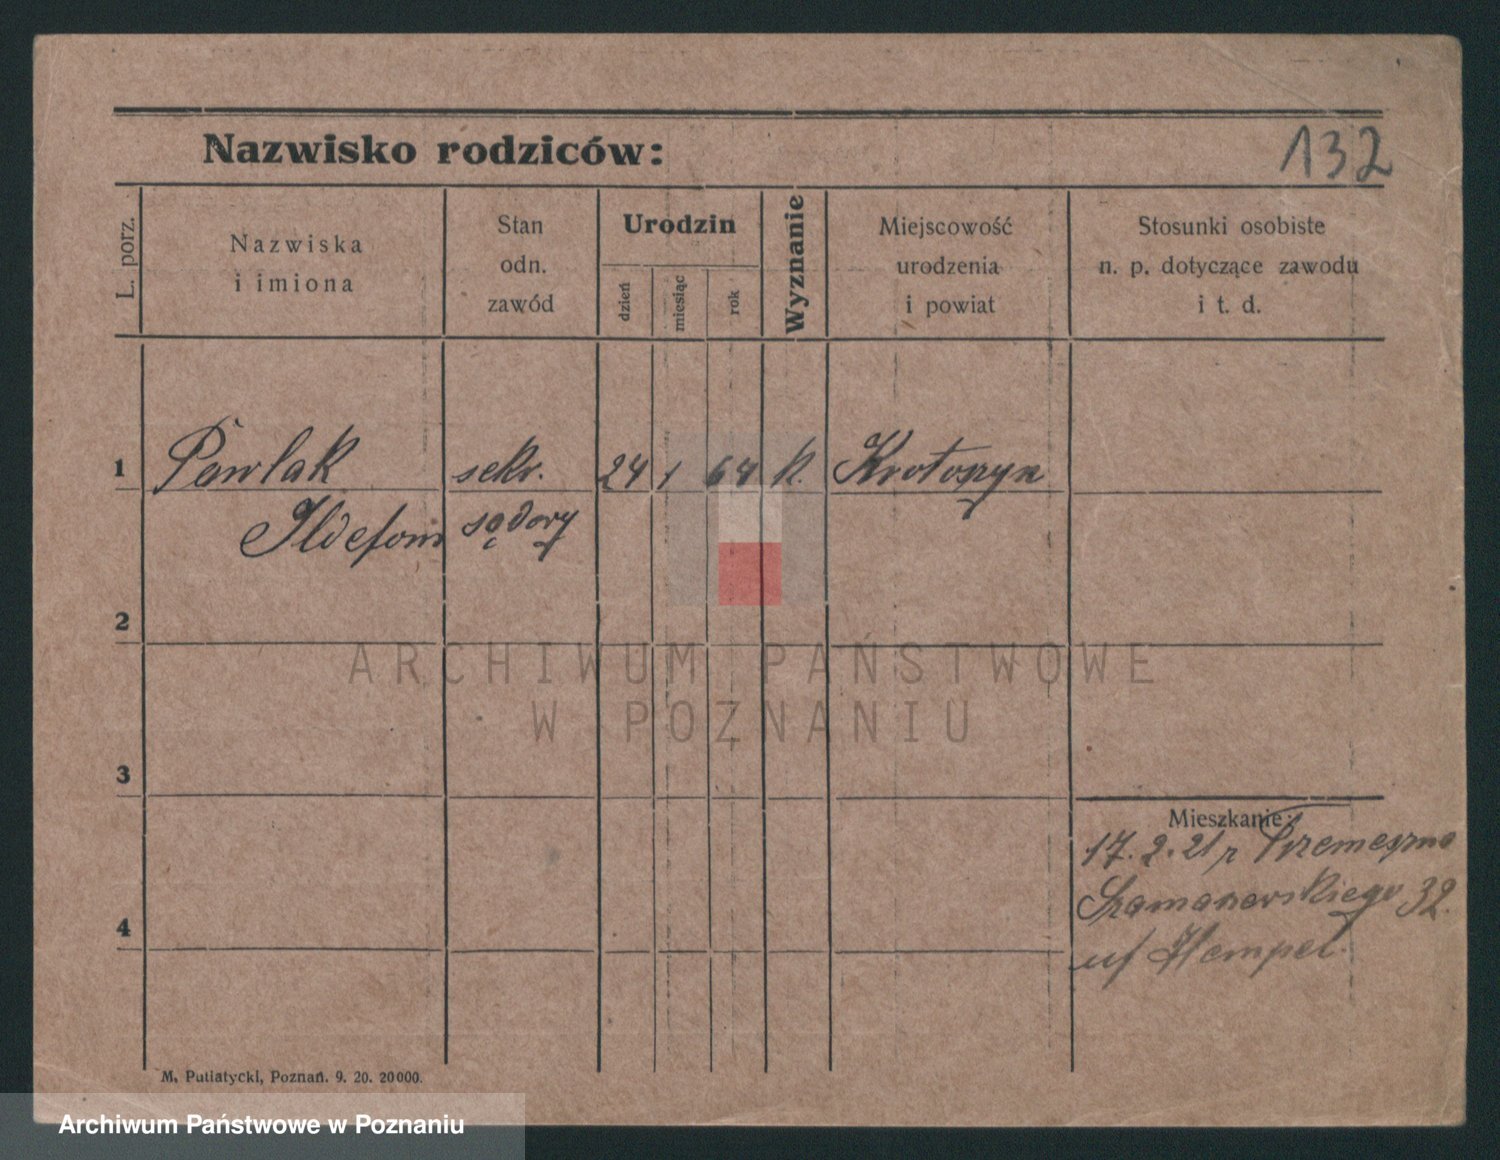 Nazwisko rodziców:
132
L. porz.
Nazwiska
i imiona
Stan
odn.
zawód
Urodzin
dzień
miesiąc
rok
Wyznanie
Miejscowość
urodzenia
i powiat
Stosunki osobiste
n. p. dotyczące zawodu
i t. d.
1 Pawlak sekr. 24 1 64 k. Krotoszyn
Ildefons sądowy
2
ARCHIWUM PAŃSTWOWE
W POZNANIU
3
Mieszkanie:
17. 2. 21 r
32.
4
Hempel.
M. Putiatycki, Poznań. 9. 20. 20000.
Archiwum Państwowe w Poznaniu